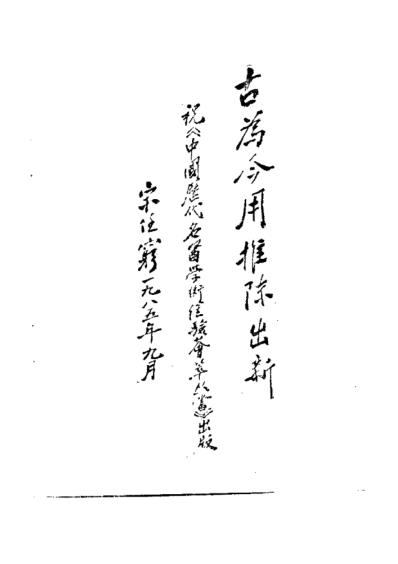 古為今用推陈出新
祝《中國歷代名醫學術経驗薈萃丛書》出版
宋任窮一九八五年九月